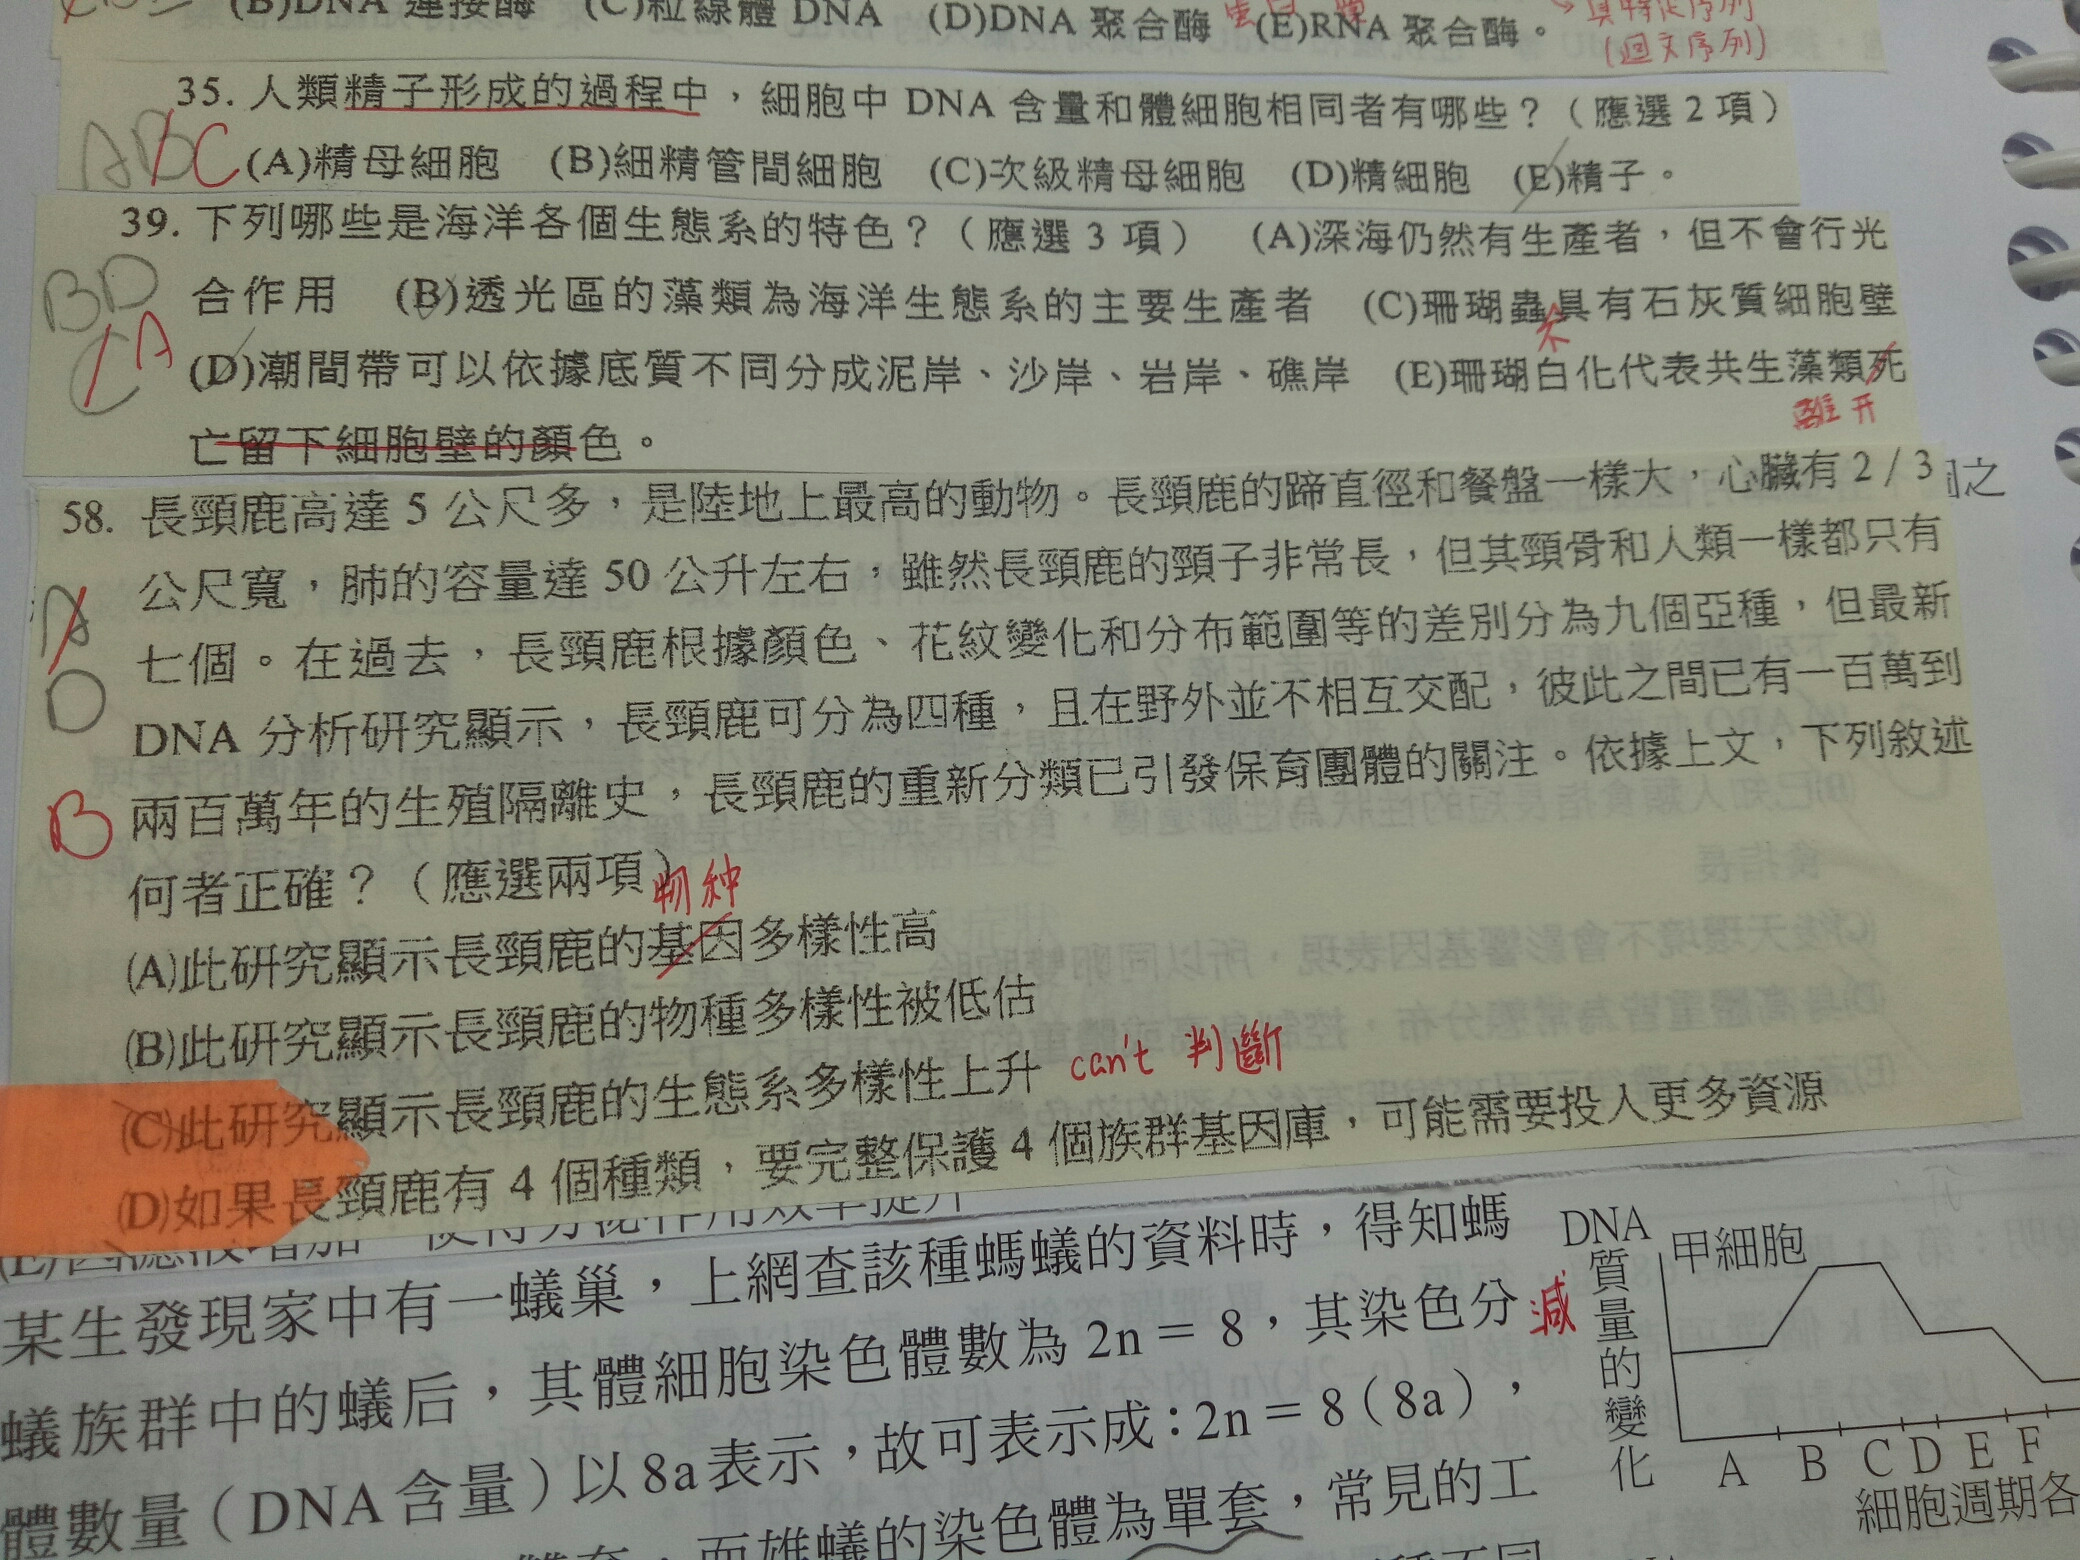 (B)DNA 連接酶 (C)粒線體 DNA (D)DNA 聚合酶 (E)RNA 聚合酶。
(迴文序列)
35. 人類精子形成的過程中，細胞中 DNA 含量和體細胞相同者有哪些？（應選 2 項）
ABC (A)精母細胞 (B)細精管間細胞 (C)次級精母細胞 (D)精細胞 (E)精子。
39. 下列哪些是海洋各個生態系的特色？（應選 3 項） (A)深海仍然有生產者，但不會行光
BD
合作用 (B)透光區的藻類為海洋生態系的主要生產者 (C)珊瑚蟲具有石灰質細胞壁
不
CA
(D)潮間帶可以依據底質不同分成泥岸、沙岸、岩岸、礁岸 (E)珊瑚白化代表共生藻類死
離開
亡留下細胞壁的顏色。
58. 長頸鹿高達 5 公尺多，是陸地上最高的動物。長頸鹿的蹄直徑和餐盤一樣大，心臟有 2 / 3
之
公尺寬，肺的容量達 50 公升左右，雖然長頸鹿的頸子非常長，但其頸骨和人類一樣都只有
A
七個。在過去，長頸鹿根據顏色、花紋變化和分布範圍等的差別分為九個亞種，但最新
D
DNA 分析研究顯示，長頸鹿可分為四種，且在野外並不相互交配，彼此之間已有一百萬到
B
兩百萬年的生殖隔離史，長頸鹿的重新分類已引發保育團體的關注。依據上文，下列敘述
何者正確？（應選兩項）
物种
(A)此研究顯示長頸鹿的基因多樣性高
(B)此研究顯示長頸鹿的物種多樣性被低估
(C)此研究顯示長頸鹿的生態系多樣性上升 can't 判斷
(D)如果長頸鹿有 4 個種類，要完整保護 4 個族群基因庫，可能需要投入更多資源
某生發現家中有一蟻巢，上網查該種螞蟻的資料時，得知螞
蟻族群中的蟻后，其體細胞染色體數為 2n = 8，其染色分
減
體數量（DNA 含量）以 8a 表示，故可表示成：2n = 8（8a），
而雄蟻的染色體為單套，常見的工
DNA
質
量
的
變
化
甲細胞
A B C D E F
細胞週期各